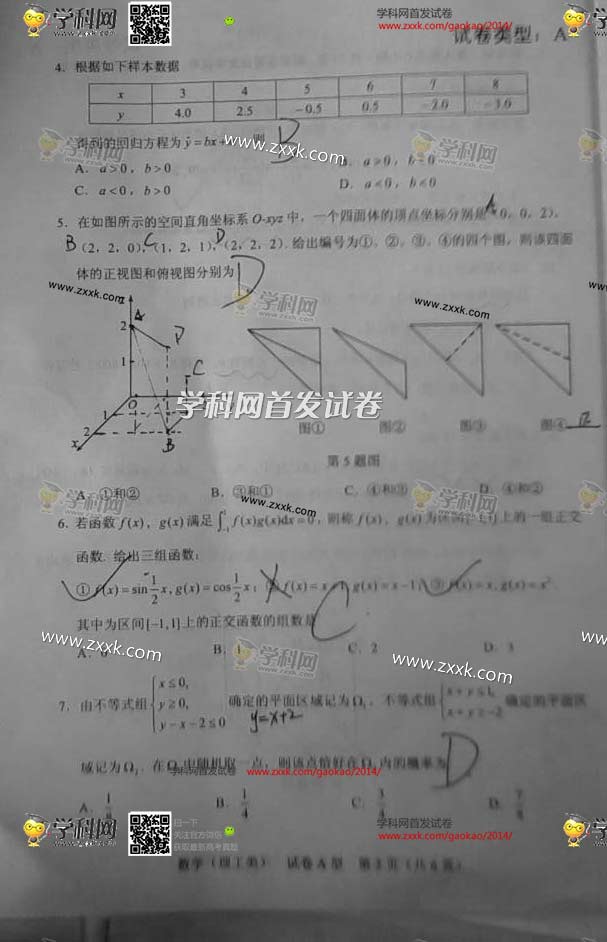 学科网 学科网首发试卷 学科网
www.zxxk.com/gaokao/2014/
试卷类型：A
4. 根据如下样本数据
x 3 4 5 6 7 8
y 4.0 2.5 −0.5 0.5 −2.0 −3.0
得到的回归方程为 ŷ=bx+ 则 B
www.zxxk.com
A. a>0, b>0 B. a>0, b<0
C. a<0, b>0 D. a<0, b<0
5. 在如图所示的空间直角坐标系 O-xyz 中，一个四面体的顶点坐标分别是 A 0, 0, 2),
B (2, 2, 0), C (1, 2, 1), D (2, 2, 2). 给出编号为①、②、③、④的四个图，则该四面
体的正视图和俯视图分别为 D
www.zxxk.com 学科网 www.zxxk.com
z A 2 D 1 C O 1 2 x B
学科网首发试卷
图① 图② 图③ 图④ 正
第 5 题图
A. ①和② B. ③和① C. ④和③ D. ④和②
学科网 www.zxxk.com 学科网
6. 若函数 f(x), g(x) 满足 ∫₋₁¹ f(x)g(x)dx=0, 则称 f(x), g(x) 为区间[-1,1]上的一组正交
函数. 给出三组函数：
① f(x)=sin 1/2 x, g(x)=cos 1/2 x; ② f(x)=x g(x)=x-1; ③ f(x)=x, g(x)=x²
其中为区间[−1,1]上的正交函数的组数是 C
A. 0 B. C. 2 D. 3
www.zxxk.com 学科网 www.zxxk.com www.zxxk.com
7. 由不等式组 { x≤0, y≥0, y−x−2≤0 确定的平面区域记为 Ω₁, 不等式组 { x+y≤1, x+y≥−2 确定的平面区
y=x+2
域记为 Ω₂, 在 Ω₁ 中随机取一点, 则该点恰好在 Ω₂ 内的概率为 D
学科网首发试卷 www.zxxk.com/gaokao/2014/
A. 1/8 B. 1/4 C. 3/4 D. 7/8
学科网 扫一下 学科网首发试卷 学科网
关注官方微信 www.zxxk.com/gaokao/2014/
获取最新高考真题
数学（理工类） 试卷 A 型 第 2 页（共 6 页）